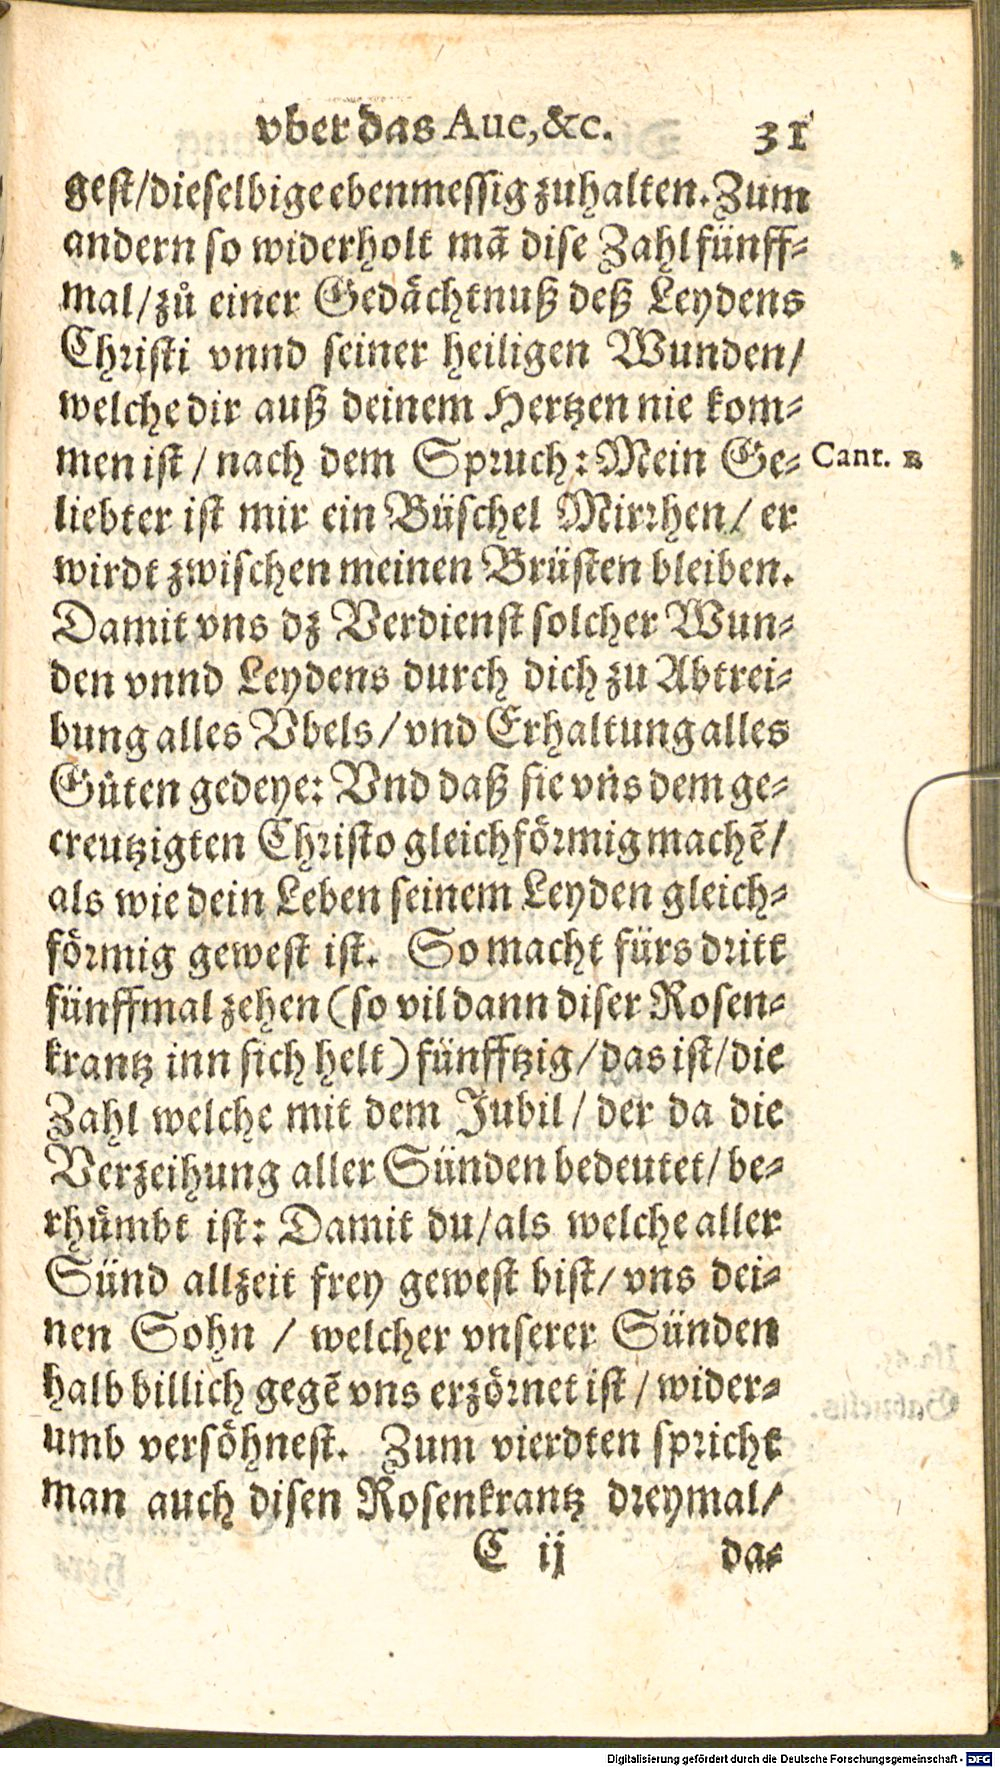 vber das Aue, &c. 31
gest/dieselbige ebenmessig zuhalten. Zum
andern so widerholt mã dise Zahl fünff-
mal/zů einer Gedaͤchtnuß deß Leydens
Christi vnnd seiner heiligen Wunden/
welche dir auß deinem Hertzen nie kom-
men ist / nach dem Spruch: Mein Ge-
Cant.
liebter ist mir ein Büschel Mirrhen/ er
wirdt zwischen meinen Brüsten bleiben.
Damit vns dz Verdienst solcher Wun-
den vnnd Leydens durch dich zu Abtrei-
bung alles Vbels/vnd Erhaltung alles
Gůten gedeye: Vnd daß sie vns dem ge-
creutzigten Christo gleichfoͤrmig machẽ/
als wie dein Leben seinem Leyden gleich-
foͤrmig gewest ist. So macht fürs dritt
fünffmal zehen (so vil dann diser Rosen-
krantz inn sich helt) fünfftzig/das ist/die
Zahl welche mit dem Jubil/ der da die
Verzeihung aller Sünden bedeutet/ be-
rhuͤmbt ist: Damit du/als welche aller
Sünd allzeit frey gewest bist/ vns dei-
nen Sohn / welcher vnserer Sünden
halb billich gegẽ vns erzoͤrnet ist / wider-
umb versoͤhnest. Zum vierdten spricht
man auch disen Rosenkrantz dreymal/
C ij da-
Digitalisierung gefördert durch die Deutsche Forschungsgemeinschaft - DFG